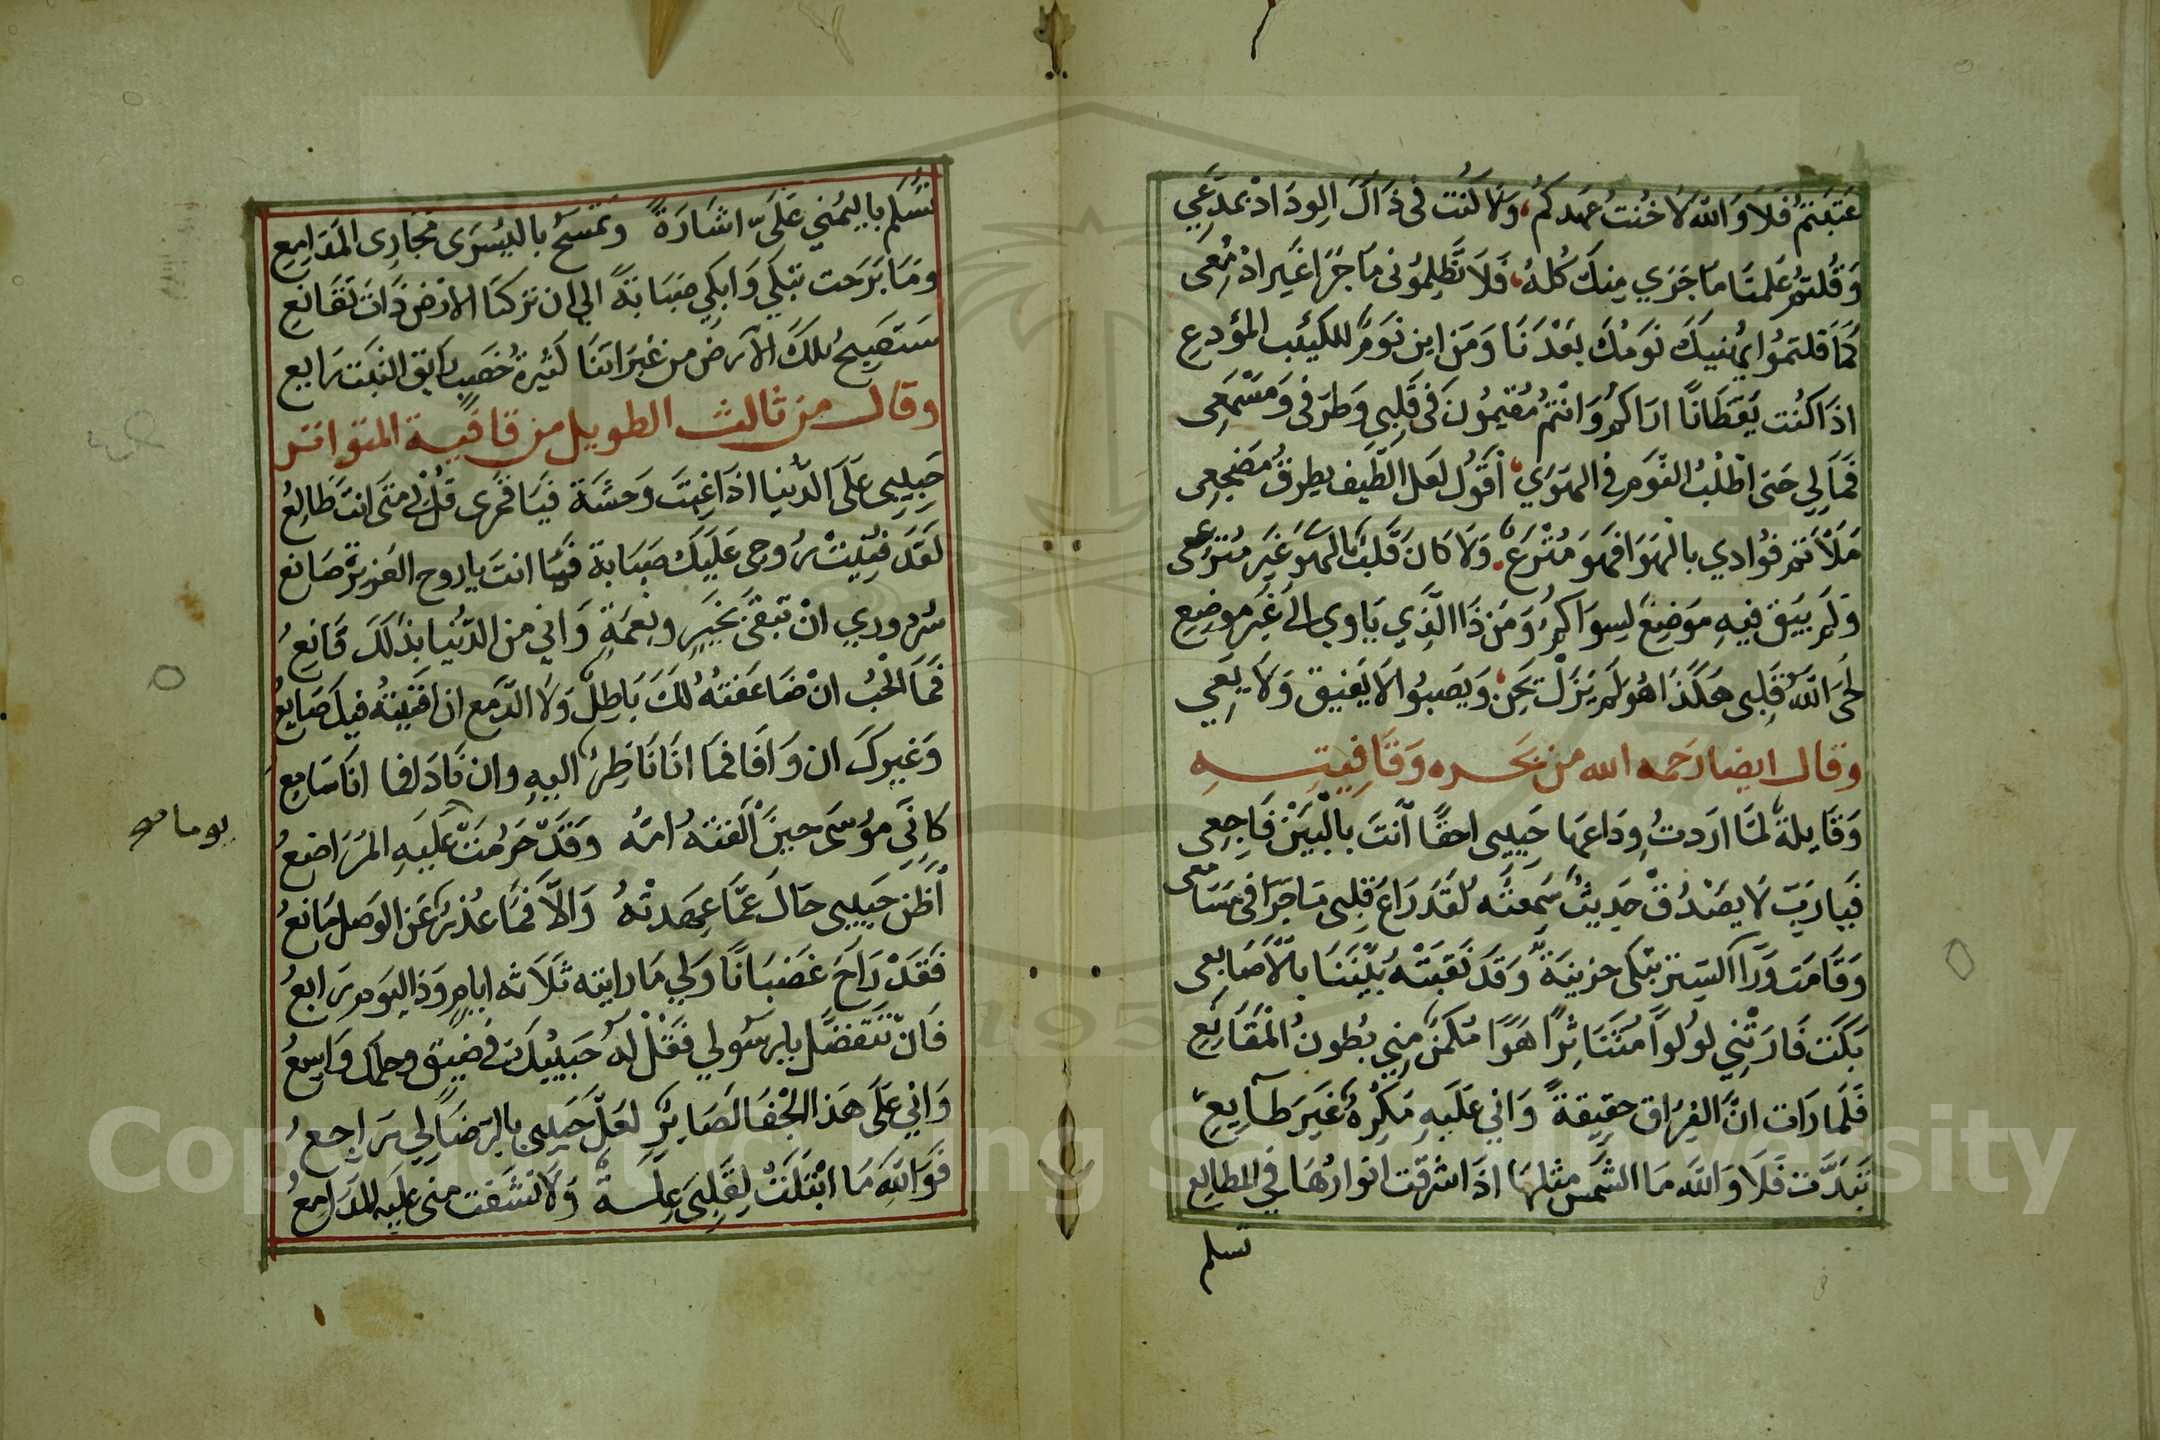 عَتَبتمُ فَلَا وَاللهِ لَا خُنتُ عهدكمُ وَلَا كُنت فى ذَاكَ الوداد بمدّعي
وَقُلتمُ عَلمنَا مَا جَرَي مِنكَ كُلهُ فَلَا تَظلِمُونى مَا جَرَا غَير ادْمُعى
كَمَا قلتمُوا يُهْنيكَ نَومُكَ بَعْدَنَا وَمَن اين نَومٌ للكئيب المؤدعِ
اذَا كنُت يَقظَانًا اراكمُ وَانتمُ مُقيمُونَ فى قَلبِي وَطرفى وَمَسْمَعِى
فَمَا لِي حَتى اطْلُبُ النَّومَ في الهَوَي أقُولُ لعَل الطَّيف يطرقُ مَضجعِى
مَلأتم فؤادي بالهَوَا فهوَ مُتْرَعٌ وَلَا كَانَ قَلبٌ بالهَوَ غَير مُترعِى
وَلَم يَبقَ فيهِ مَوْضِعٌ لِسِوَاكمُ وَمَن ذَا الَّذِي يَاوي الى غَير موضِعِ
لحَى اللَّهُ قَلبى هَكَذَا هُو لَم يَزَلْ يَحن وَيَصبُوا لَا يَفيق وَلَا يعِي
وقال ايضا رَحمه الله من بَحـره وَقَافِيتِـهِ
وَقَايلة لمَّا ارَدتُ وِدَاعهَا حَبيبى احقًا أنتَ بالْبَيْنِ فَاجِعِى
فَيا رَبّ لا يَصْدُقْ حَدِيثٌ سَمِعتُه لقَد رَاعَ قَلبى مَا جَرَا فى مَسَامعى
وَقَامَت وَرَآ السِتر تبْكى حزينَةً وَقَد نَقبَتْهُ بَيْنَنَا بالأَصَابِعى
بَكَت فَارَتْنِي لُولُوًا مُتَنَاثِرًا هَوَا مَكمَن مِني بُطُونُ الْمَقَارِعِ
فَلَما رَات انَّ الفِرَاق حَقِيقةً وَاني عَلَيهِ مَكرهٌ غَيرَ طَـآيِعِ
تَبَدَّت فَلَا وَاللهَ مَا الشَّمسُ مثلهَا اذَا اشرقت انوارُهَا فِي المطالعِ
تسلم
تُسَلم باليُمْني عَلَىّ اشَارَةً وَتمسَحُ باليُسْرَى مَجَارِى المَدَامِعِ
وَمَا بَرَحت تبْكي وَابكي صَبَابَةً الي ان تركنَا الارْضَ ذَاتَ نَقَانِعِ
سَتَصِيحُ تلكَ الأرض من غَبَراتنَا كَثيرَةُ خصبٍ رَايقِ النَبت رَايعِ
وقال من ثالث الطويل من قافية المتواتر
حَبِيبى عَلَى الدّنيا اذَا غِبتَ وَحشَة فيَا قمرى قُلْ لى مَتى انتَ طَالِعُ
لَقد فَنِيَتْ رُوحى عَلَيكَ صَبَابة فَمَا انتَ يا روح العَزيزَة صَانعُ
سُروري انْ تَبقَى بخَيرٍ ونعمَةٍ وَاني من الدُّنيَا بذَلكَ قَانِعُ
فَمَا الحُبُّ انْ ضَاعَفتهُ لكَ بَاطِلٌ وَلا الدَّمع ان افنَيتهُ فيكَ ضَايعُ
وَغيركَ ان وَافَا فمَا انَا نَاظِرٌ اليهِ وان نَادَا فما انَا سَامِعِ
كَانِّي مُوسَى حينَ ألقتهُ امّهُ وَقَدْ حَرُمَتْ عَلَيهِ المَرَاضعُ
أَظن حَبيبى حَالَ عَمَّا عَهِدتهُ وَالّا فَمَا عُذرٌ عَن الوَصل مَانعُ
فَقَدْ رَاحَ غَضبَانًا وَلي مَا رايتهُ ثَلَاثه ايامٍ وَذا اليَوم رَابعُ
فَانْ تَتَفضَّل يا رَسُولي فَقُلْ لَهُ حَبيْبُكَ فى ضِيق وحلمكَ وَاسِعُ
وَاني عَلَى هَذا الجَفا لَصَابرٌ لعَلّ حَبيبى بالرّضَا لِي رَاجعُ
فَوَاللَّهِ مَا ابْتَلَّتْ لِقَلبِى غِلـةٌ وَلا نَشَفت منى عَلَيه المدَامعُ
Copyright © King Saud University